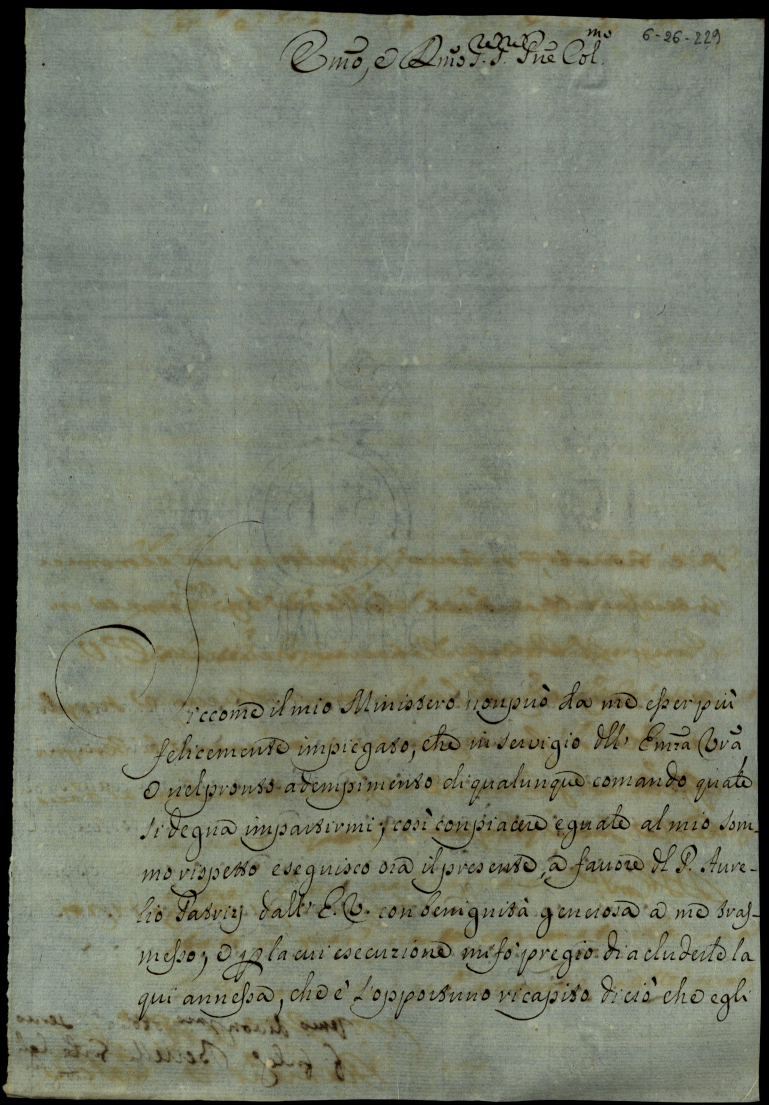 6-26-229
Emo, e Rmo S. S. Pne Col.mo
Siccome il mio Ministero non può da me esser più
felicemente impiegato, che in servigio dell' Emza Vra
e nel pronto adempimento di qualunque comando quale
si degna impartirmi; così con piacere eguale al mio som-
mo rispetto eseguisco ora il presente, a favore del P. Aure-
lio Patrizj dall' E. V. con benignità generosa a me tras-
messo; e per la cui esecuzione mi fò pregio di acluderle la
qui annessa, che è l'opportuno ricapito di ciò che egli